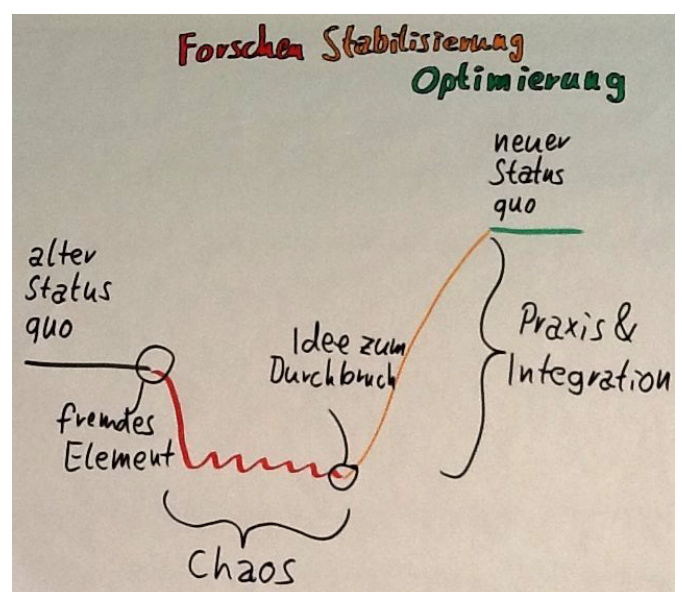 Forschen Stabilisierung
Optimierung
neuer
Status
quo
alter
Status
quo
Idee zum
Durchbruch
Praxis &
Integration
fremdes
Element
Chaos